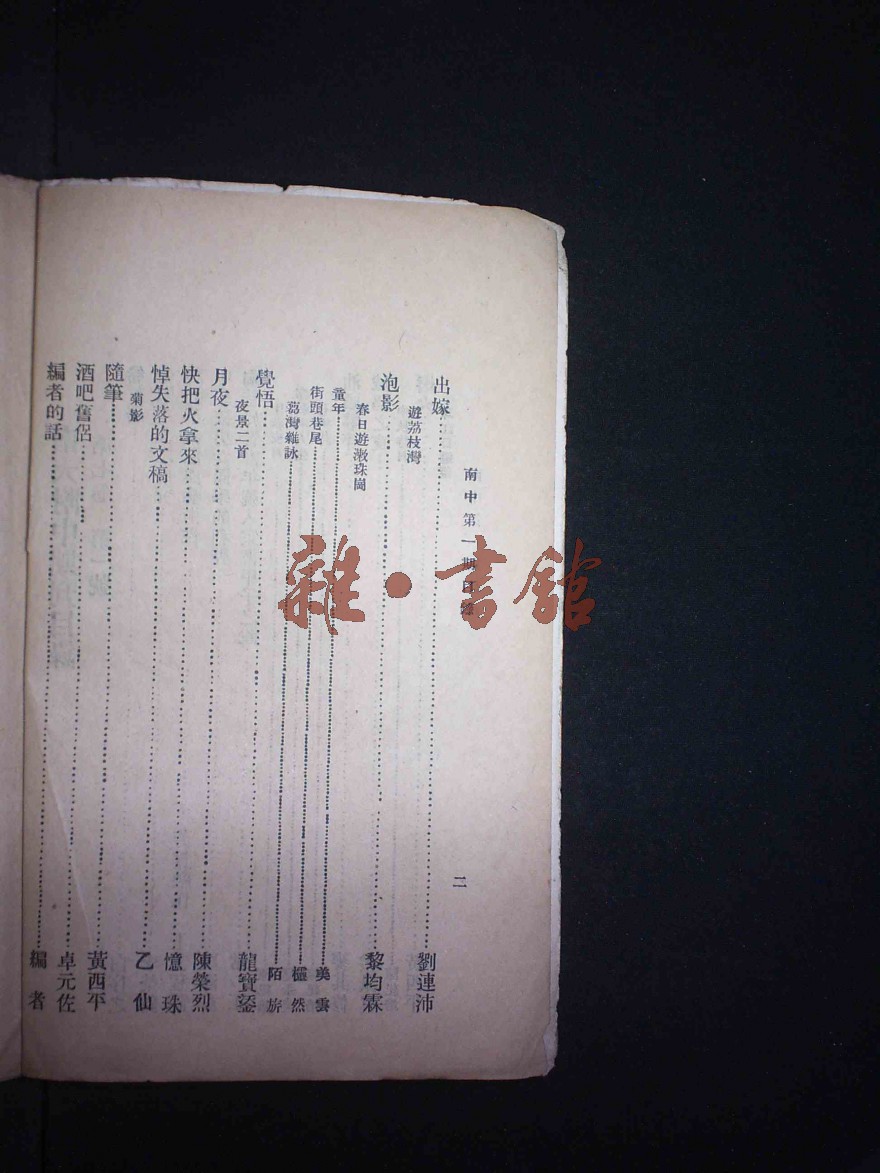 南中第一期目錄
二
出嫁……劉連沛
遊荔枝灣
泡影……黎均霖
春日遊漱珠崗
童年……美雲
街頭巷尾……然
荔灣雜詠……陌旂
覺悟……龍寶鋈
夜景二首
月夜……陳榮烈
快把火拿來……憶珠
悼失落的文稿……乙仙
菊影
隨筆……黃西平
酒吧舊侶……卓元佐
編者的話……編者
雜·書館